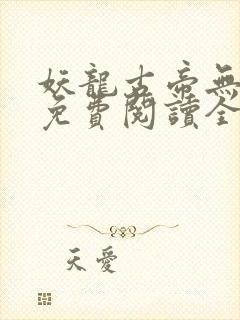 妖龍古帝無
免費閱讀全
天愛